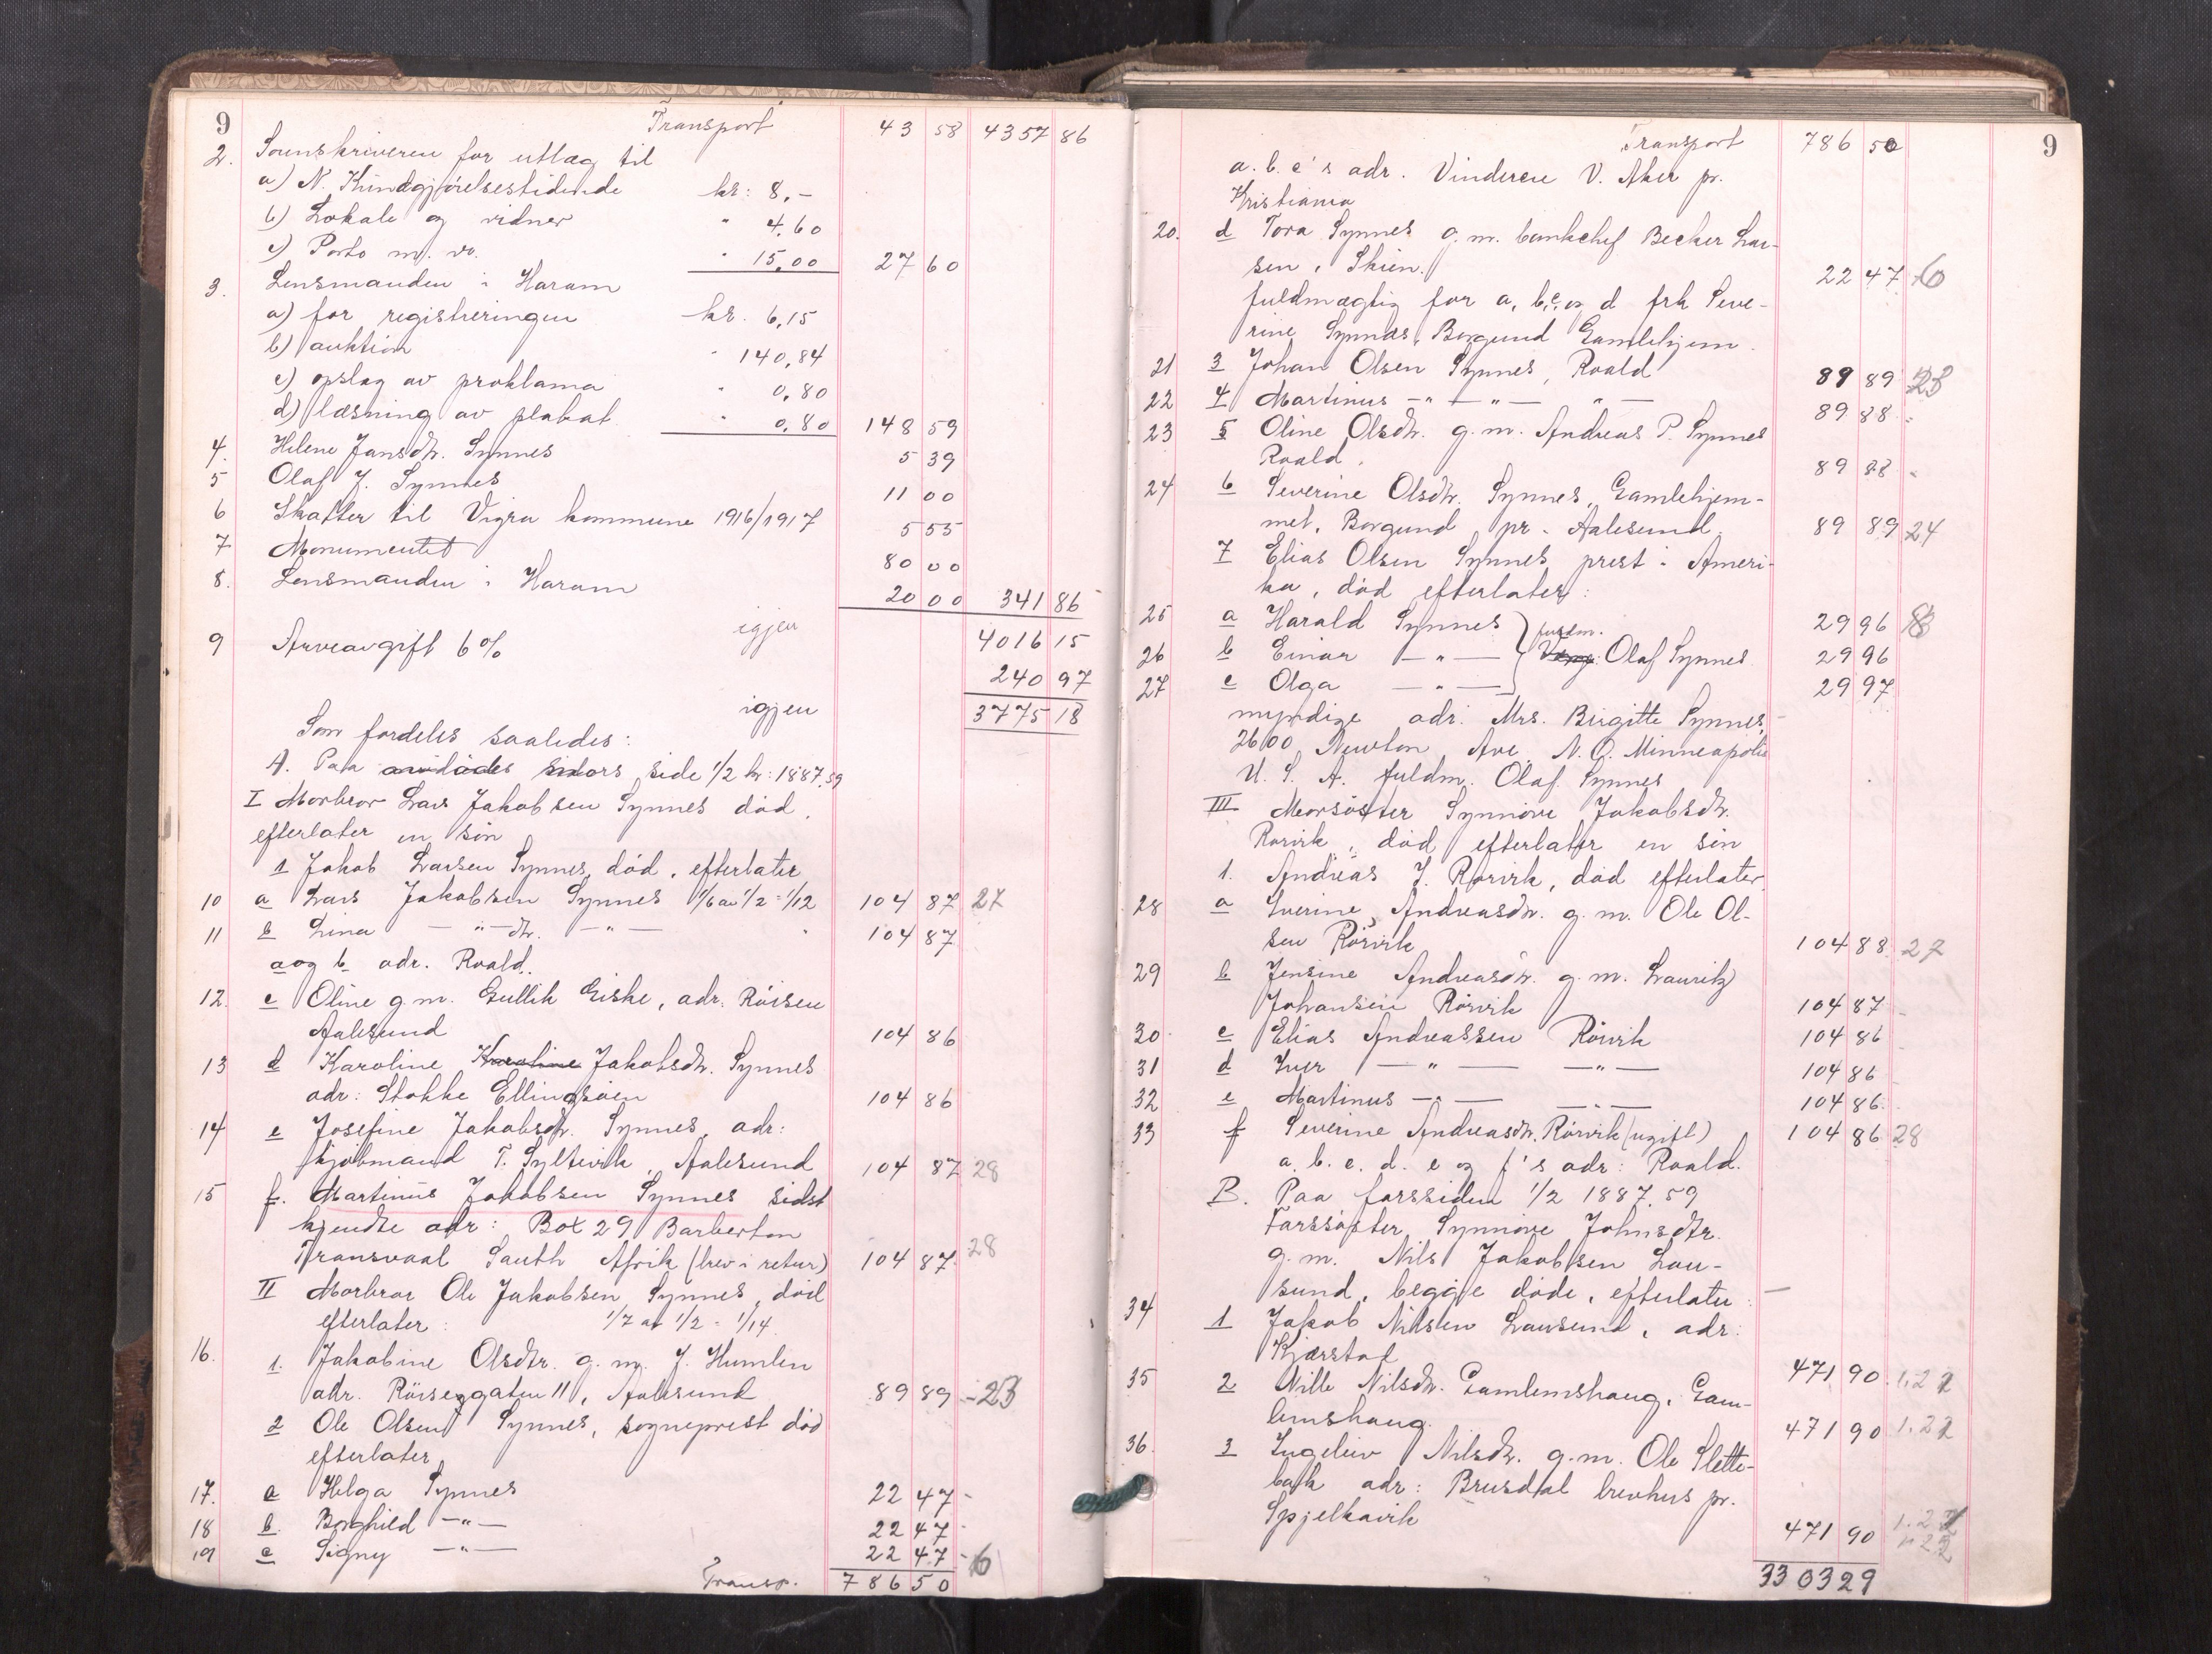 9 Transport 43 58 4357 86
2. Sorenskriveren for utlæg til
a) N. Kundgjörelsestidende kr: 8.-
b) Lokale og vidner " 4.60
c) Porto m. v. " 15,00 27 60
3. Lensmanden i Haram
a) for registreringen kr. 6,15
b) auktion " 140,84
c) opslag av proklama " 0,80
d) læsning av plakat. " 0,80 148 59
4. Helene Jansdtr. Synnes 5 39
5 Olaf J. Synnes 11 00
6 Skatter til Vigra kommune 1916/1917 5 55
7 Monumentet 80 00
8. Lensmanden i Haram 20 00 341 86
igjen 4016 15
9 Arveavgift 6% 240 97
igjen 3775 18
Som fordeles saaledes:
A. Paa avdödes mors side 1/2 kr: 1887.59
I Morbror Lars Jakobsen Synnes död,
efterlater en sön
1 Jakob Larsen Synnes, död, efterlater
10 a Lars Jakobsen Synnes 1/6 av 1/2 = 1/12 104 87 27
11 b Lina — " — dtr. — " — " 104 87
a og b adr. Roald.
12. c Oline g.m. Gullik Giske, adr. Röisen
Aalesund 104 86
13 d Karoline Karoline Jakobsdtr. Synnes
adr: Stokke Ellingsöen 104 86
14 e Josefine Jakobsdtr. Synnes, adr:
kjöbmand T. Syltevik, Aalesund 104 87 28
15 f. Martinus Jakobsen Synnes sidst
kjendte adr: Box 29 Barberton
Transvaal South Afrik (brev i retur) 104 87. 28
II Morbror Ole Jakobsen Synnes, död
efterlater: 1/7 av 1/2 = 1/14.
16. 1. Jakobine Olsdtr. g.m. J. Humlen
adr. Röisegaten 11, Aalesund 89 89 - 23
2 Ole Olsen Synnes, sogneprest död
efterlater
17. a Helga Synnes 22 47 -
18 b. Borghild — " — 22 47 -
19 c Signy — " — 22 47 - 6
Transp. 786 50
Transport 786 50 9
a. b. c's adr. Vinderen V. Aker pr.
Kristiania
20. d Tora Synnes g.m. bankchef Becker Lar-
sen, Skien. 22 47 6
fuldmægtig for a, b, c og d frk Seve-
rine Synnes, Borgund Gamlehjem.
21 3 Johan Olsen Synnes, Roald 89 89 23
22 4 Martinus — " — " — " — 89 88 -
23 5 Oline Olsdtr. g.m. Andreas P. Synnes
Roald. 89 88 -
24 6 Severine Olsdtr. Synnes, Gamlehjem-
met, Borgund pr. Aalesund. 89 89 24
7 Elias Olsen Synnes, prest i Ameri-
ka, död efterlater:
25 a Harald Synnes 29 96 8
26 b Einar — " — fuldm. Olaf Synnes 29 96
27 c Olga — " — 29 97
myndige adr: Mrs. Birgitte Synnes,
2600 Newton Ave N. O. Minneapolis
U. S. A. fuldm. Olaf Synnes
III Morsöster Synnöve Jakobsdtr.
Rörvik, död efterlater en sön
1. Andreas J. Rörvik, död efterlater
28 a Iverine Andreasdtr. g.m. Ole Ol-
sen Rörvik 104 88 27
29 b Jensine Andreasdtr. g.m. Lauritz
Johansen Rörvik 104 87 -
30 c Elias Andreassen Rörvik 104 86
31 d Iver — " — — " — 104 86
32 e Martinus — " — — " — 104 86
33 f Severine Andreasdtr. Rörvik (ugift) 104 86 28
a. b. c. d. e og f's adr: Roald.
B. Paa farssiden 1/2 1887.59
Farssöster Synnöve Johnsdtr.
g.m. Nils Jakobsen Lau-
sund, begge döde, efterlater: —
34 1 Jakob Nilsen Lausund, adr:
Kjærstad 471 90 1.22
35 2 Nille Nilsdtr. Gamlemshaug, Gam-
lemshaug. 471 90 1.22
36. 3 Ingeleiv Nilsdtr. g.m. Ole Slette-
bak adr: Brusdal brevhus pr.
Spjelkavik 471 90 1.22
330329